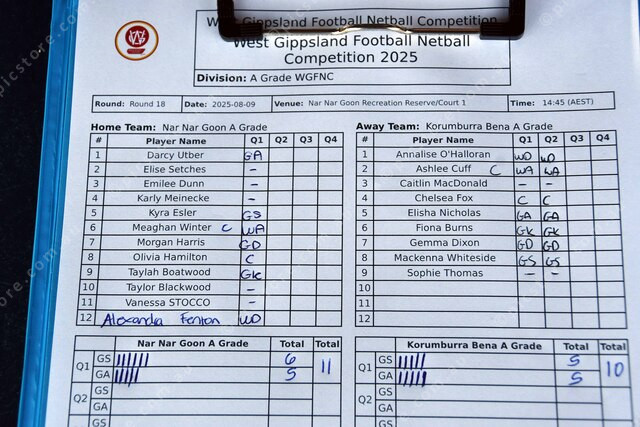 West Gippsland Football Netball Competition
West Gippsland Football Netball
Competition 2025
Division: A Grade WGFNC
Round: Round 18 Date: 2025-08-09 Venue: Nar Nar Goon Recreation Reserve/Court 1 Time: 14:45 (AEST)
Home Team: Nar Nar Goon A Grade
# Player Name Q1 Q2 Q3 Q4
1 Darcy Utber GA
2 Elise Setches -
3 Emilee Dunn -
4 Karly Meinecke -
5 Kyra Esler GS
6 Meaghan Winter C WA
7 Morgan Harris GD
8 Olivia Hamilton C
9 Taylah Boatwood GK
10 Taylor Blackwood -
11 Vanessa STOCCO -
12 Alexandra Fenton WD
Away Team: Korumburra Bena A Grade
# Player Name Q1 Q2 Q3 Q4
1 Annalise O'Halloran WD WD
2 Ashlee Cuff C WA WA
3 Caitlin MacDonald - -
4 Chelsea Fox C C
5 Elisha Nicholas GA GA
6 Fiona Burns GK GK
7 Gemma Dixon GD GD
8 Mackenna Whiteside GS GS
9 Sophie Thomas - -
10
11
12
Nar Nar Goon A Grade Total Total
Q1 GS 6 11
GA 5
Q2 GS
GA
GS
Korumburra Bena A Grade Total Total
Q1 GS 5 10
GA 5
Q2 GS
GA
GS